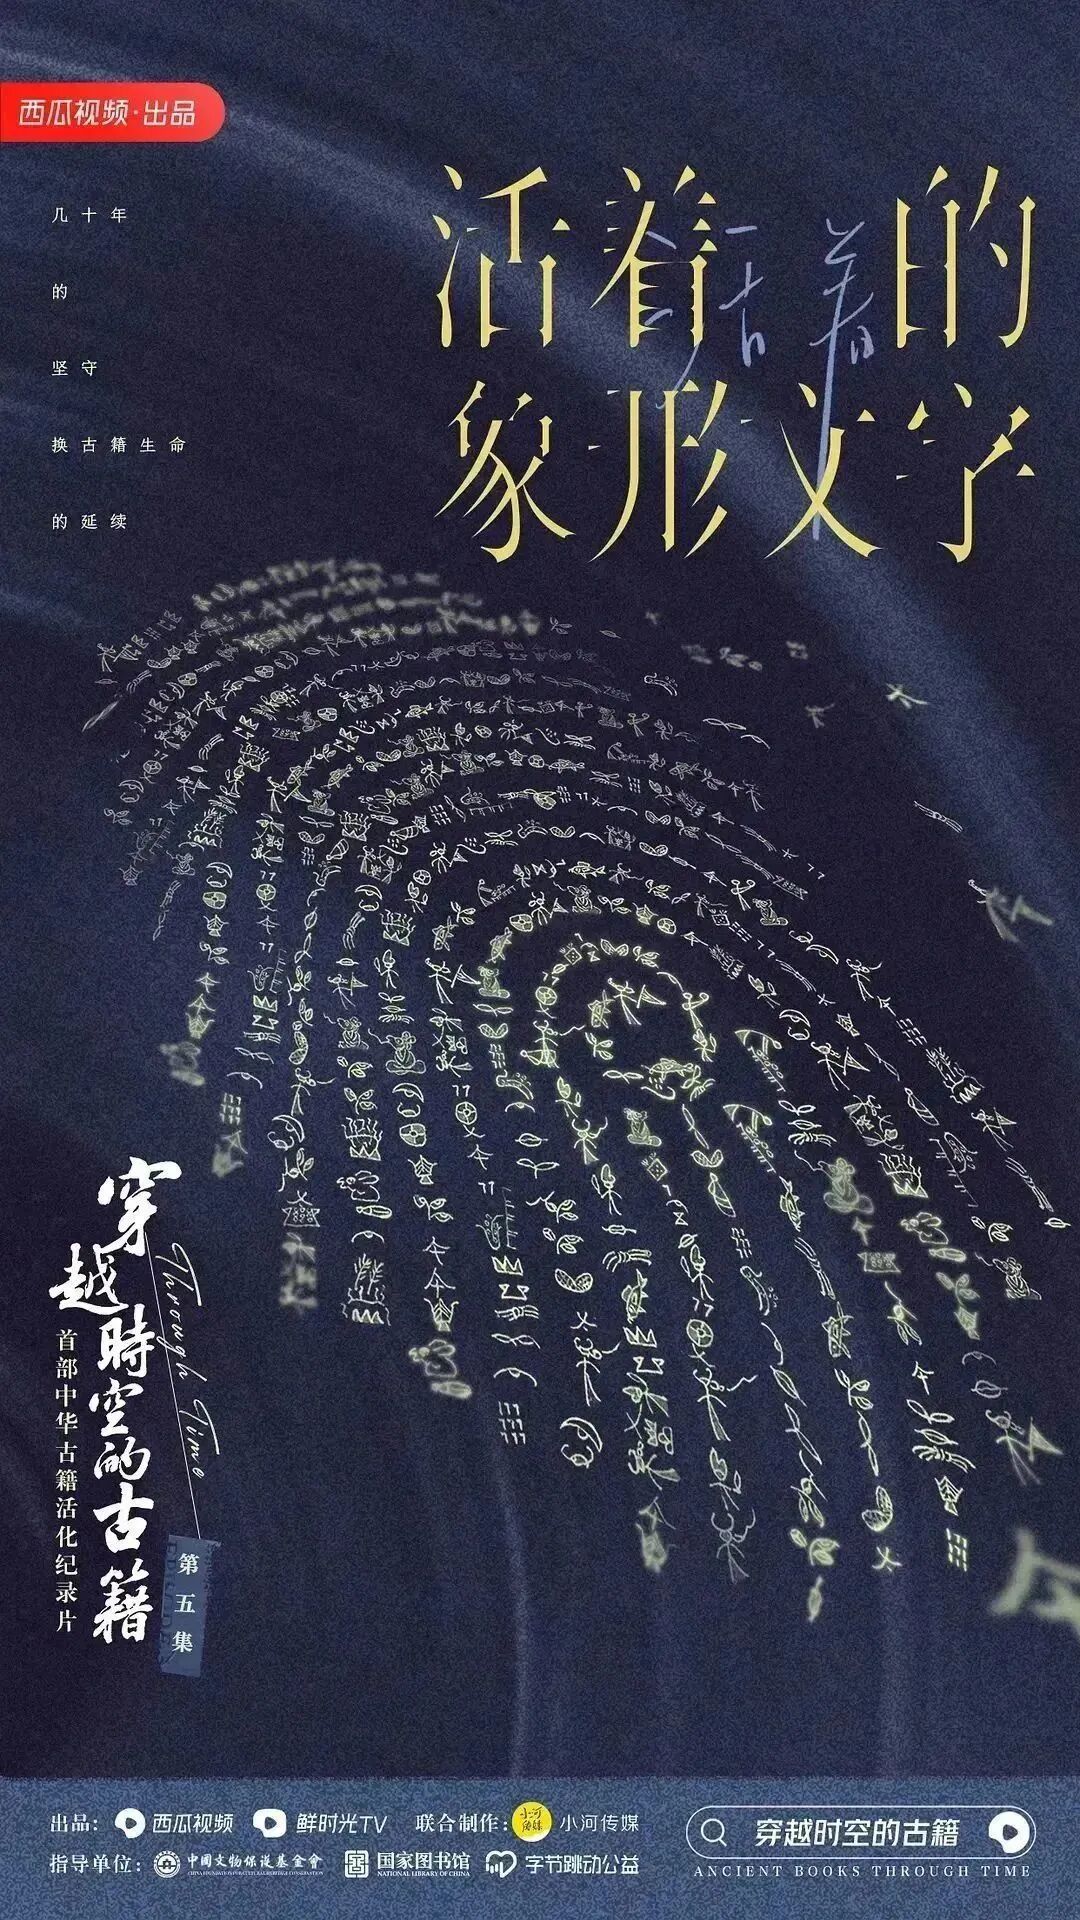 西瓜视频·出品
几十年
的
坚守
换古籍生命
的延续
活着的
活着
象形文字
穿越時空的古籍
Through Time
首部中华古籍活化纪录片
第五集
出品： 西瓜视频 鲜时光TV 联合制作： 小河传媒 小河传媒
指导单位： 中国文物保护基金會 国家图书馆 NATIONAL LIBRARY OF CHINA 字节跳动公益
穿越时空的古籍
ANCIENT BOOKS THROUGH TIME